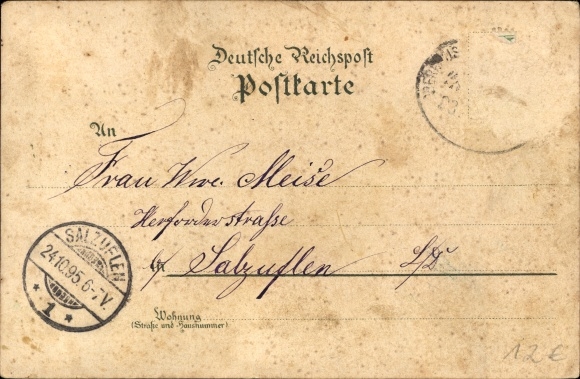 Deutsche Reichspost
Postkarte
An
Frau Wwe. Meise
Herforderstraße
in Salzuflen L/D.
SALZUFLEN
24.10.95.6-7V.
* 1 *
Wohnung
(Straße und Hausnummer)
12€